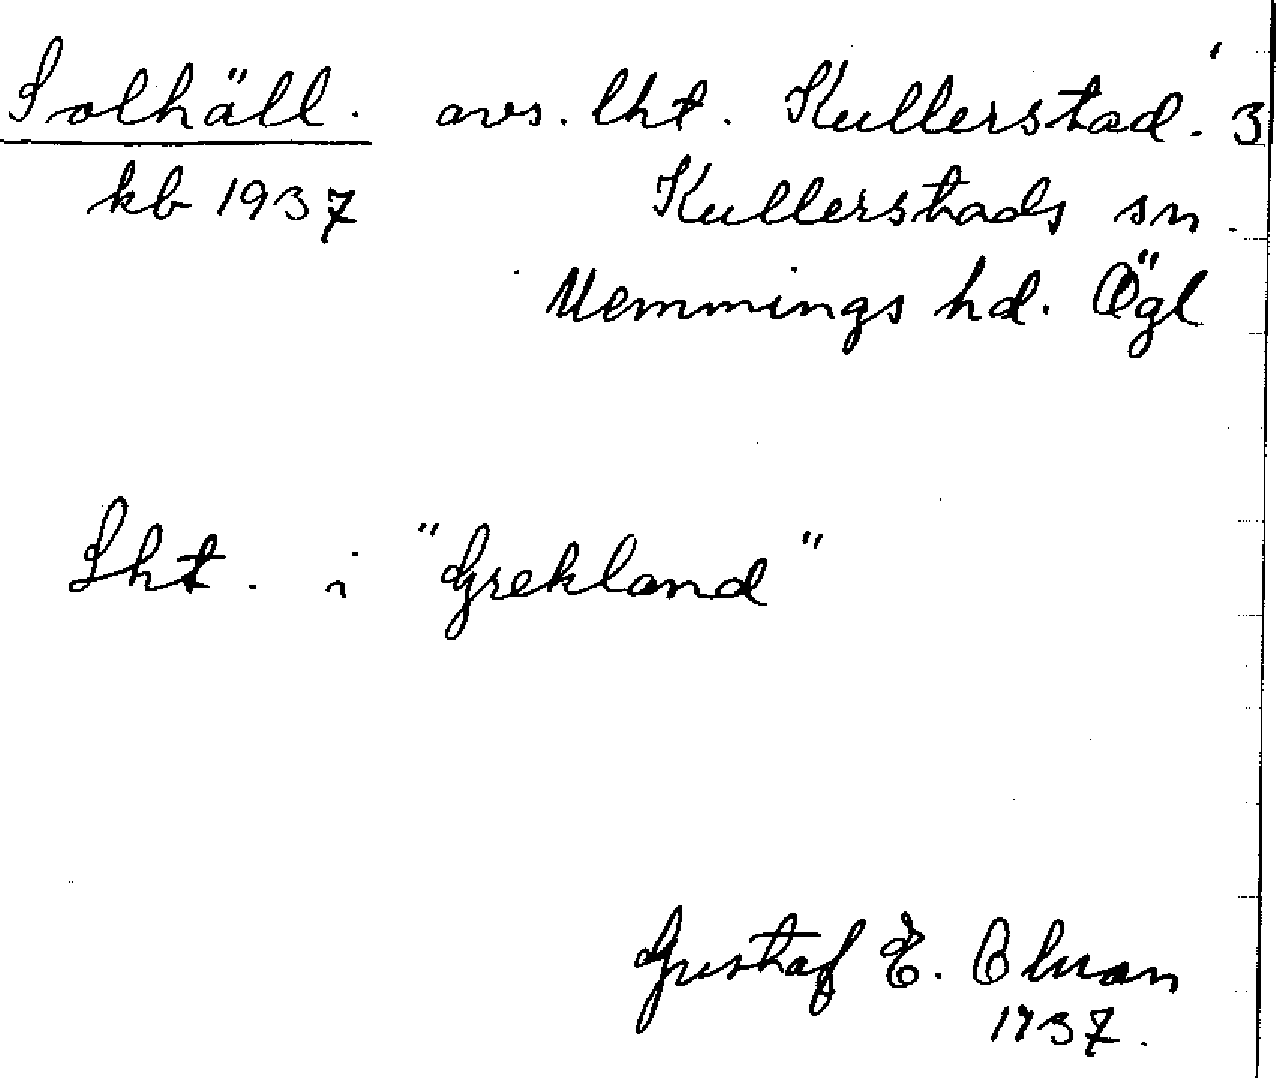 Solhäll. avs. lht. Kullerstad. 3
kb 1937 Kullerstads sn.
Memmings hd. Ögl
Lht. i "Grekland"
Gustaf E. Olson
1937.